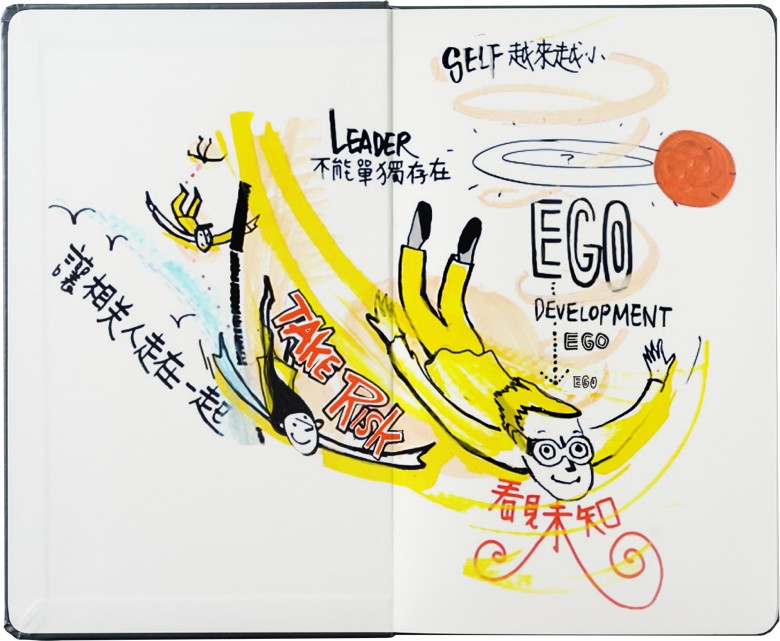 SELF 越來越小
LEADER
不能單獨存在
?
EGO
DEVELOPMENT
EGO
EGO
TAKE RISK
讓相关人走在一起
看見未知